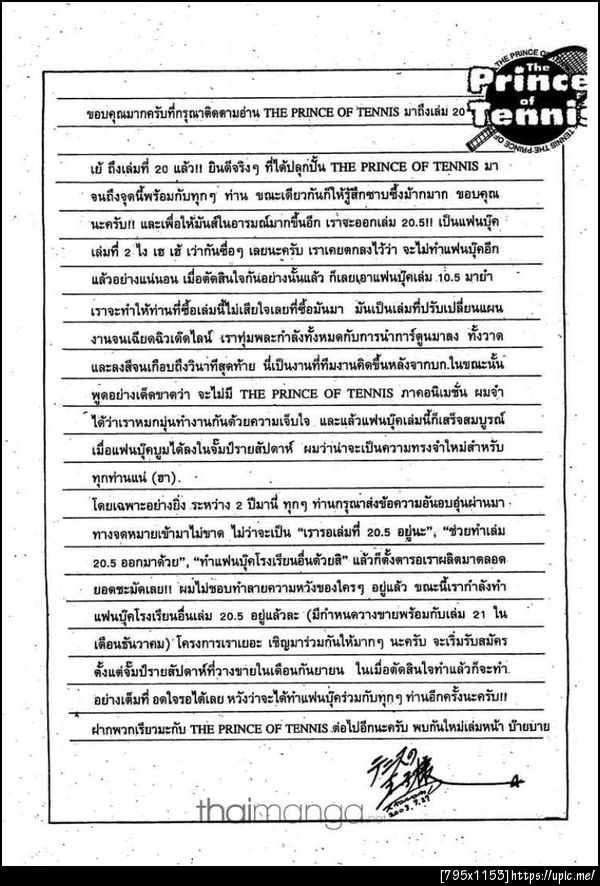 THE PRINCE OF
The
Prince
of
Tennis
TENNIS THE PRINCE OF
ขอบคุณมากครับที่กรุณาติดตามอ่าน THE PRINCE OF TENNIS มาถึงเล่ม 20
เย้ ถึงเล่มที่ 20 แล้ว!! ยินดีจริงๆ ที่ได้ปลุกปั้น THE PRINCE OF TENNIS มา
จนถึงจุดนี้พร้อมกับทุกๆ ท่าน ขณะเดียวกันก็ให้รู้สึกซาบซึ้งม้ากมาก ขอบคุณ
นะครับ!! และเพื่อให้มันส์ในอารมณ์มากขึ้นอีก เราจะออกเล่ม 20.5!! เป็นแฟนบุ๊ค
เล่มที่ 2 ไง เฮ เฮ้ เว่ากันซื่อๆ เลยนะครับ เราเคยตกลงไว้ว่า จะไม่ทำแฟนบุ๊คอีก
แล้วอย่างแน่นอน เมื่อตัดสินใจกันอย่างนั้นแล้ว ก็เลยเอาแฟนบุ๊คเล่ม 10.5 มายำ
เราจะทำให้ท่านที่ซื้อเล่มนี้ไม่เสียใจเลยที่ซื้อมันมา มันเป็นเล่มที่ปรับเปลี่ยนแผน
งานจนเฉียดฉิวเด๊ดไลน์ เราทุ่มพละกำลังทั้งหมดกับการนำการ์ตูนมาลง ทั้งวาด
และลงสีจนเกือบถึงวินาทีสุดท้าย นี่เป็นงานที่ทีมงานคิดขึ้นหลังจากบก.ในขณะนั้น
พูดอย่างเด็ดขาดว่า จะไม่มี THE PRINCE OF TENNIS ภาคอนิเมชั่น ผมจำ
ได้ว่าเราหมกมุ่นทำงานกันด้วยความเจ็บใจ และแล้วแฟนบุ๊คเล่มนี้ก็เสร็จสมบูรณ์
เมื่อแฟนบุ๊คบูมได้ลงในจั๊มป์รายสัปดาห์ ผมว่าน่าจะเป็นความทรงจำใหม่สำหรับ
ทุกท่านแน่ (ฮา).
โดยเฉพาะอย่างยิ่ง ระหว่าง 2 ปีมานี่ ทุกๆ ท่านกรุณาส่งข้อความอันอบอุ่นผ่านมา
ทางจดหมายเข้ามาไม่ขาด ไม่ว่าจะเป็น “เรารอเล่มที่ 20.5 อยู่นะ”, “ช่วยทำเล่ม
20.5 ออกมาด้วย”, “ทำแฟนบุ๊คโรงเรียนอื่นด้วยสิ” แล้วก็ตั้งตารอเราผลิตมาตลอด
ยอดชะมัดเลย!! ผมไม่ชอบทำลายความหวังของใครๆ อยู่แล้ว ขณะนี้เรากำลังทำ
แฟนบุ๊คโรงเรียนอื่นเล่ม 20.5 อยู่แล้วละ (มีกำหนดวางขายพร้อมกับเล่ม 21 ใน
เดือนธันวาคม) โครงการเราเยอะ เชิญมาร่วมกันให้มากๆ นะครับ จะเริ่มรับสมัคร
ตั้งแต่จั๊มป์รายสัปดาห์ที่วางขายในเดือนกันยายน ในเมื่อตัดสินใจทำแล้วก็จะทำ
อย่างเต็มที่ อดใจรอได้เลย หวังว่าจะได้ทำแฟนบุ๊คร่วมกับทุกๆ ท่านอีกครั้งนะครับ!!
ฝากพวกเรียวมะกับ THE PRINCE OF TENNIS ต่อไปอีกนะครับ พบกันใหม่เล่มหน้า บ๊ายบาย
テニスの
王子様
2003.7.27
thaimanga.net
[795x1153]https://upic.me/